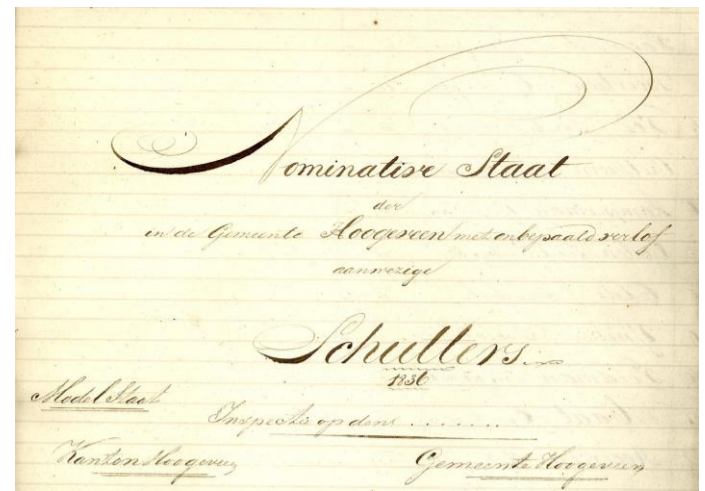 Nominative Staat
der
in de Gemeente Hoogeveen met onbepaald verlof
aanwezige
Schutters
1836
Model Staat
Inspectie op den . . . . . . .
Kanton Hoogeveen
Gemeente Hoogeveen